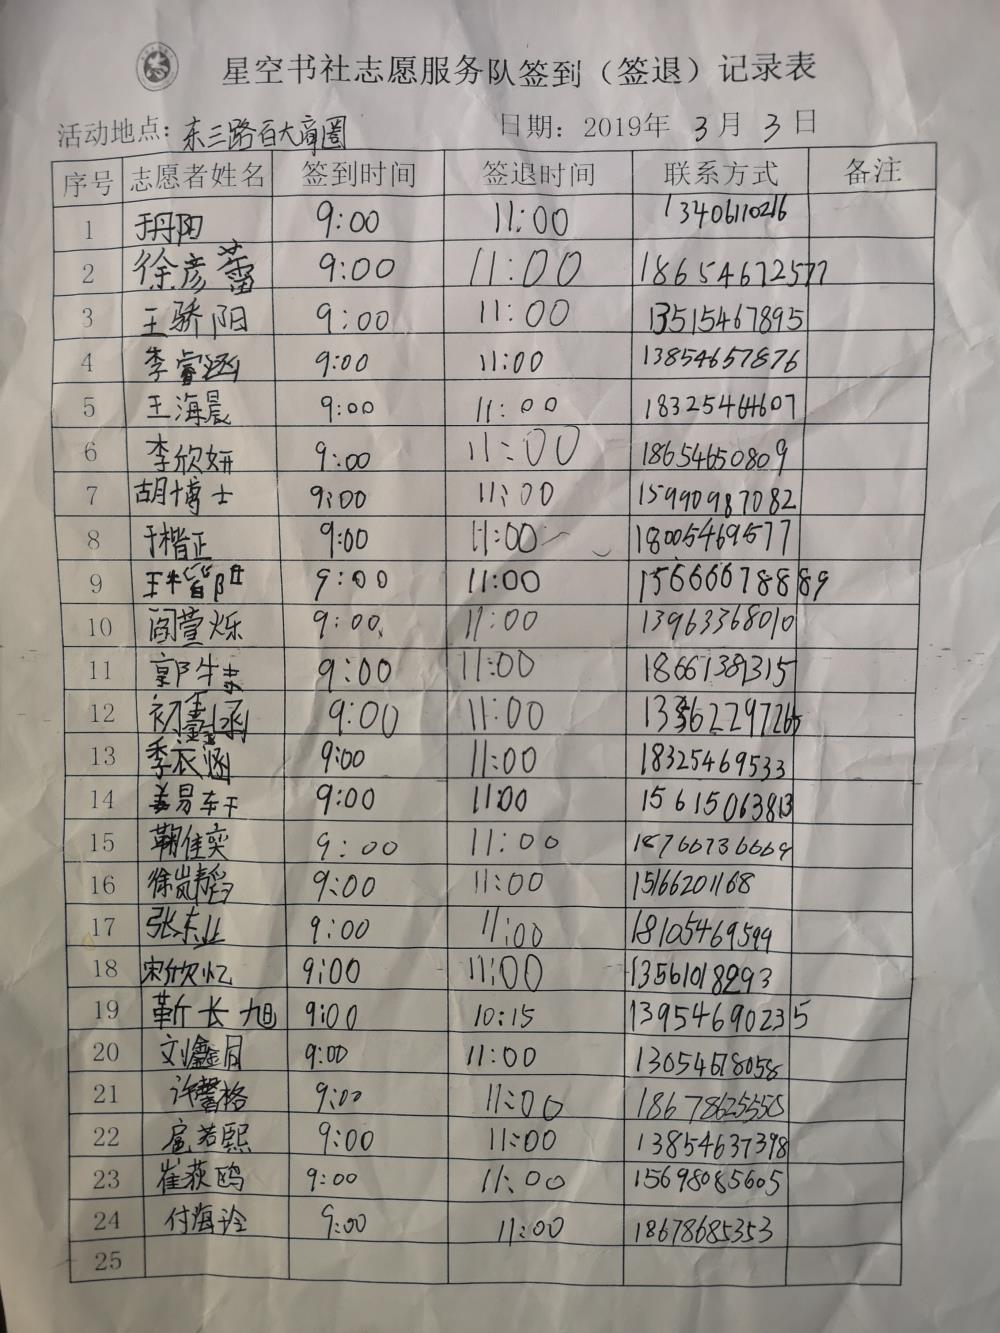 星空书社志愿服务队签到（签退）记录表
活动地点：东三路百大商圈 日期：2019年 3月 3日
序号 志愿者姓名 签到时间 签退时间 联系方式 备注
1 于丹阳 9:00 11:00 13406110216
2 徐彦蕾 9:00 11:00 18654672577
3 王骄阳 9:00 11:00 13515467895
4 李睿涵 9:00 11:00 13854657876
5 王海晨 9:00 11:00 18325464607
6 李欣妍 9:00 11:00 18654650809
7 胡博士 9:00 11:00 15990987082
8 于楷正 9:00 11:00 18005469577
9 9:00 11:00
10 阎萱烁 9:00 11:00 13963368010
11 9:00 11:00 18661381315
12 初鑫涵 9:00 11:00
13 季衣涵 9:00 11:00 18325469533
14 姜易轩 9:00 11:00 15615063813
15 鞠佳奕 9:00 11:00 18766736669
16 徐岚韬 9:00 11:00 15166201168
17 张东业 9:00 11:00 18105469599
18 宋欣忆 9:00 11:00 13561018293
19 靳长旭 9:00 10:15 13954690235
20 刘鑫月 9:00 11:00 13054678058
21 许馨格 9:00 11:00 18678625550
22 扈若熙 9:00 11:00 13854637398
23 崔荻鸥 9:00 11:00 15698085605
24 付海诠 9:00 11:00 18678685353
25